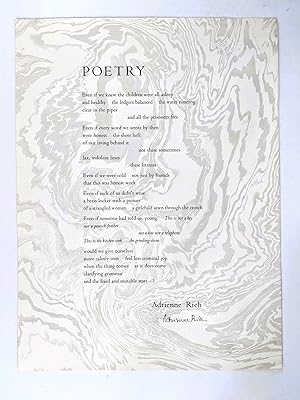 POETRY
Even if we knew the children were all asleep
and healthy the ledgers balanced the water running
clear in the pipes
and all the prisoners free
Even if every word we wrote by then
were honest the sheer heft
of our living behind it
not these sometimes
lax, indolent lines
these litanies
Even if we were told not just by friends
that this was honest work
Even if each of us didn't wear
a brass locket with a picture
of a strangled woman a girlchild sewn through the crotch
Even if someone had told us, young: This is not a key
nor a peacock feather
not a kite nor a telephone
This is the kitchen sink the grinding-stone
would we give ourselves
more calmly over feel less criminal joy
when the thing comes as it does come
clarifying grammar
and the fixed and mutable stars—?
Adrienne Rich
Adrienne Rich